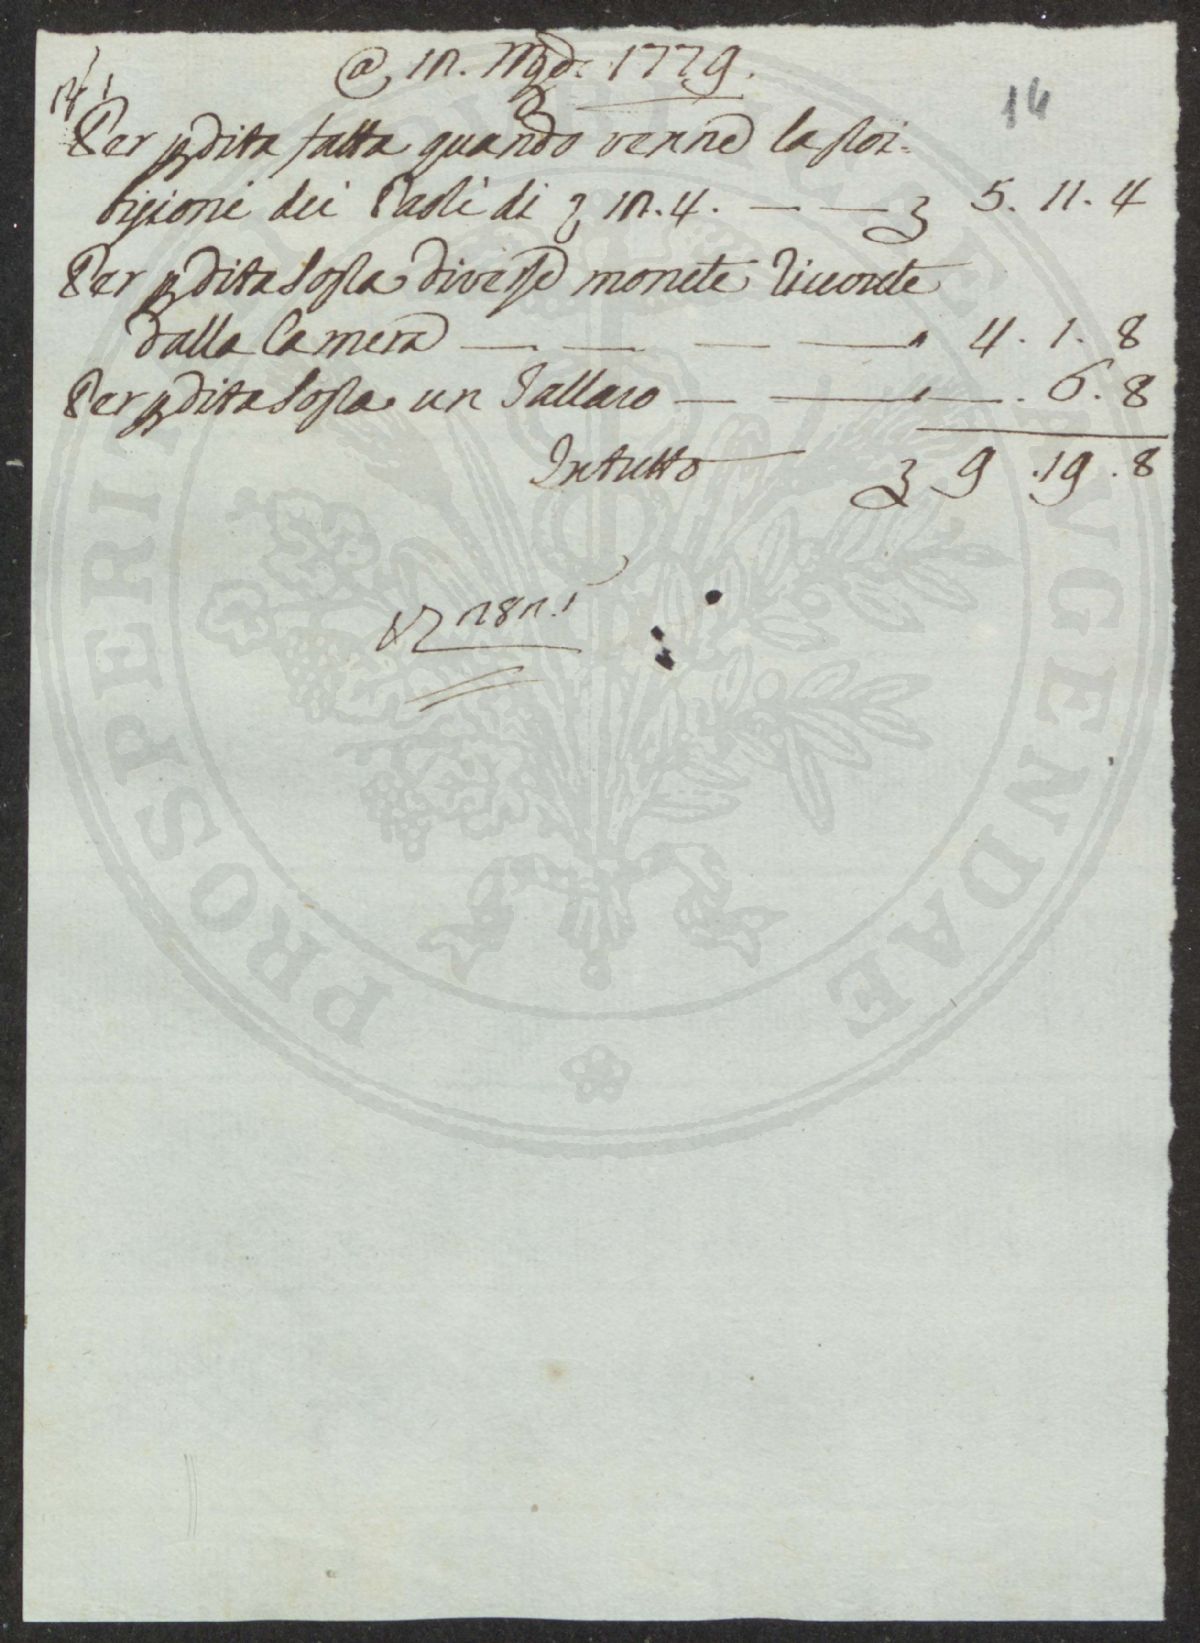 @ 12. Mgo: 1779.
14
Per pdita fatta quando venne la proi=
bizione dei Paoli di 12.4. — — 5. 11. 4
Per pdita Sopra diverse monete Ricevute
dalla Camera — — — — 4. 1. 8
Per pdita Sopra un Tallaro — — . 6. 8
In tutto 9 . 19 . 8
PROSPERITATI PUBLICAE AUGENDAE